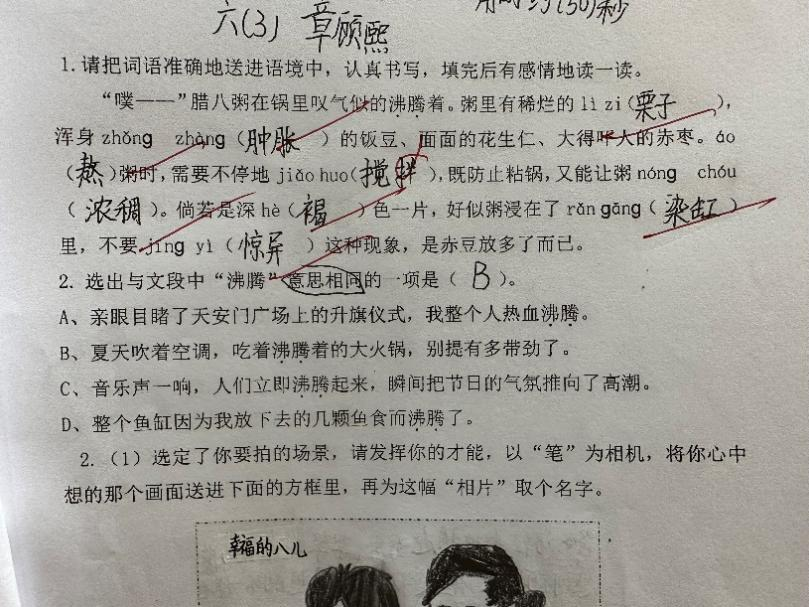 六(3) 章顾熙
1.请把词语准确地送进语境中，认真书写，填完后有感情地读一读。
“噗——”腊八粥在锅里叹气似的沸腾着。粥里有稀烂的 lì zi（栗子），
浑身 zhǒng zhàng（肿胀）的饭豆、面面的花生仁、大得吓人的赤枣。áo
（熬）粥时，需要不停地 jiǎo huo（搅拌），既防止粘锅，又能让粥 nóng chóu
（浓稠）。倘若是深 hè（褐）色一片，好似粥浸在了 rǎn gāng（染缸）
里，不要 jīng yì（惊异）这种现象，是赤豆放多了而已。
2. 选出与文段中“沸腾”意思相同的一项是（B）。
A、亲眼目睹了天安门广场上的升旗仪式，我整个人热血沸腾。
B、夏天吹着空调，吃着沸腾着的大火锅，别提有多带劲了。
C、音乐声一响，人们立即沸腾起来，瞬间把节日的气氛推向了高潮。
D、整个鱼缸因为我放下去的几颗鱼食而沸腾了。
2.（1）选定了你要拍的场景，请发挥你的才能，以“笔”为相机，将你心中
想的那个画面送进下面的方框里，再为这幅“相片”取个名字。
幸福的八儿